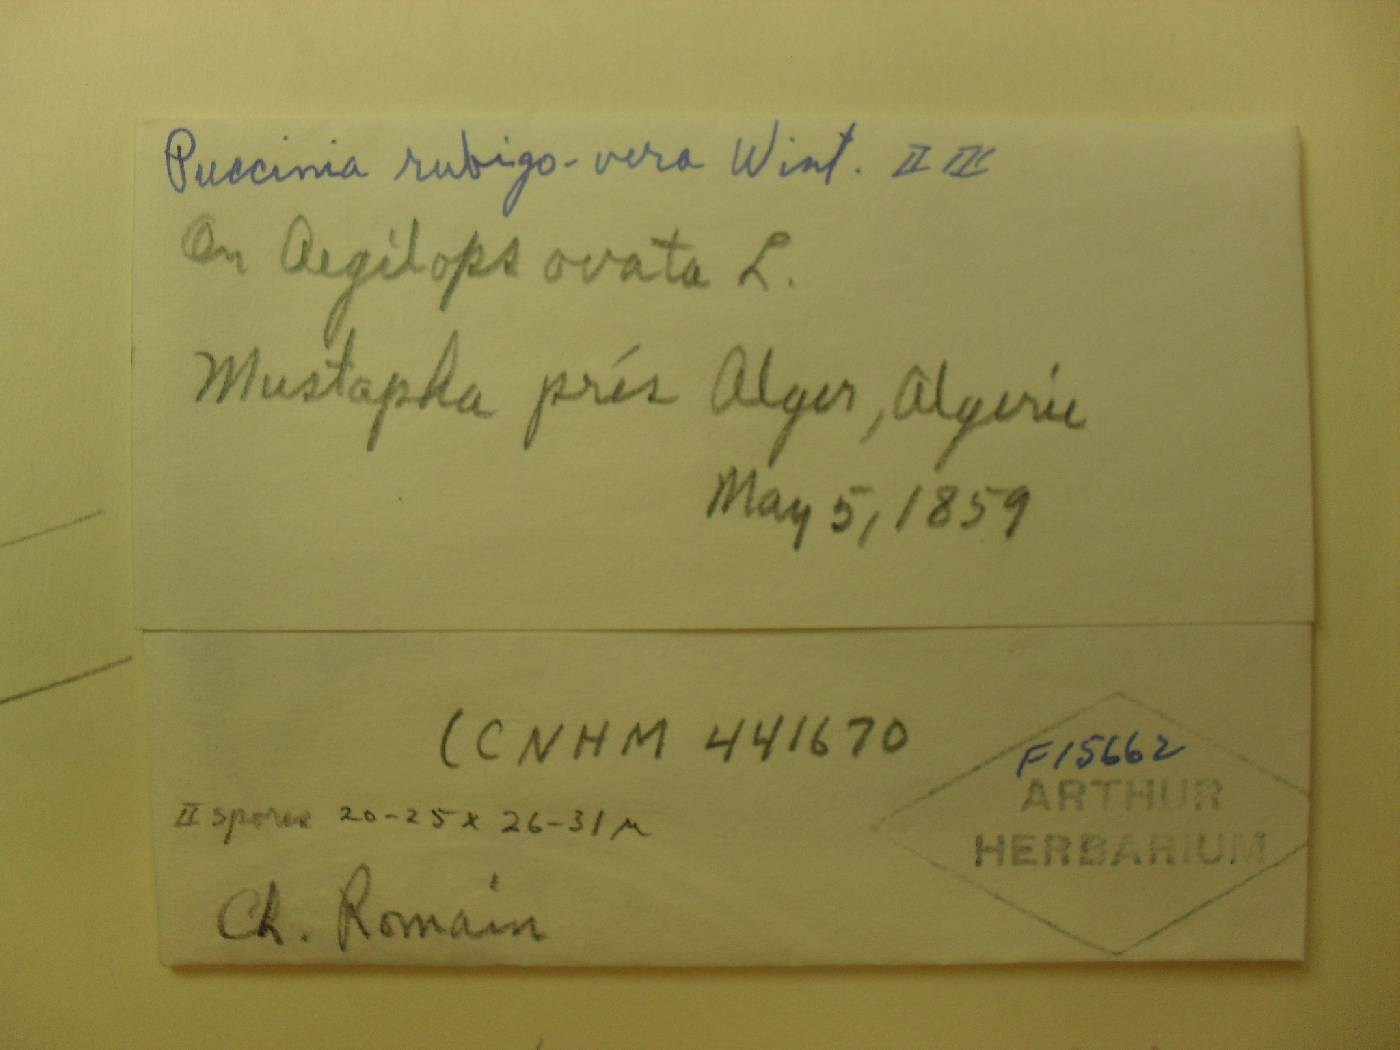 Puccinia rubigo-vera Wint. II III
On Aegilops ovata L.
Mustapha prés Alger, Algerie
May 5, 1859
(CNHM 441670
F15662
ARTHUR
HERBARIUM
II spores 20-25 x 26-31 µ
Ch. Romain